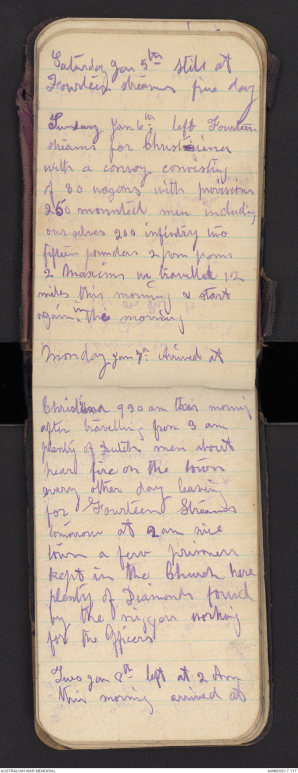 Saturday Jan 5th still at
Fourteen streams fine day
Sunday Jan 6th left Fourteen
streams for Christiana
with a convoy consisting
of 80 wagons with provisions
250 mounted men including
ourselves 200 infantry two
fifteen pounders 2 pom poms
2 Maxims we travelled 12
miles this morning & start
again in the morning
Monday Jan 7th Arrived at
Christiana 930 am this morning
after travelling from 3 am
plenty of Dutch men about
here fire on the town
every other day leaving
for Fourteen Streams
tomorrow at 2 am nice
town a few prisoners
kept in the Church here
plenty of Diamonds found
by the niggers working
for the Officers
Tues Jan 8th left at 2 am
this morning arrived at
AUSTRALIAN WAR MEMORIAL